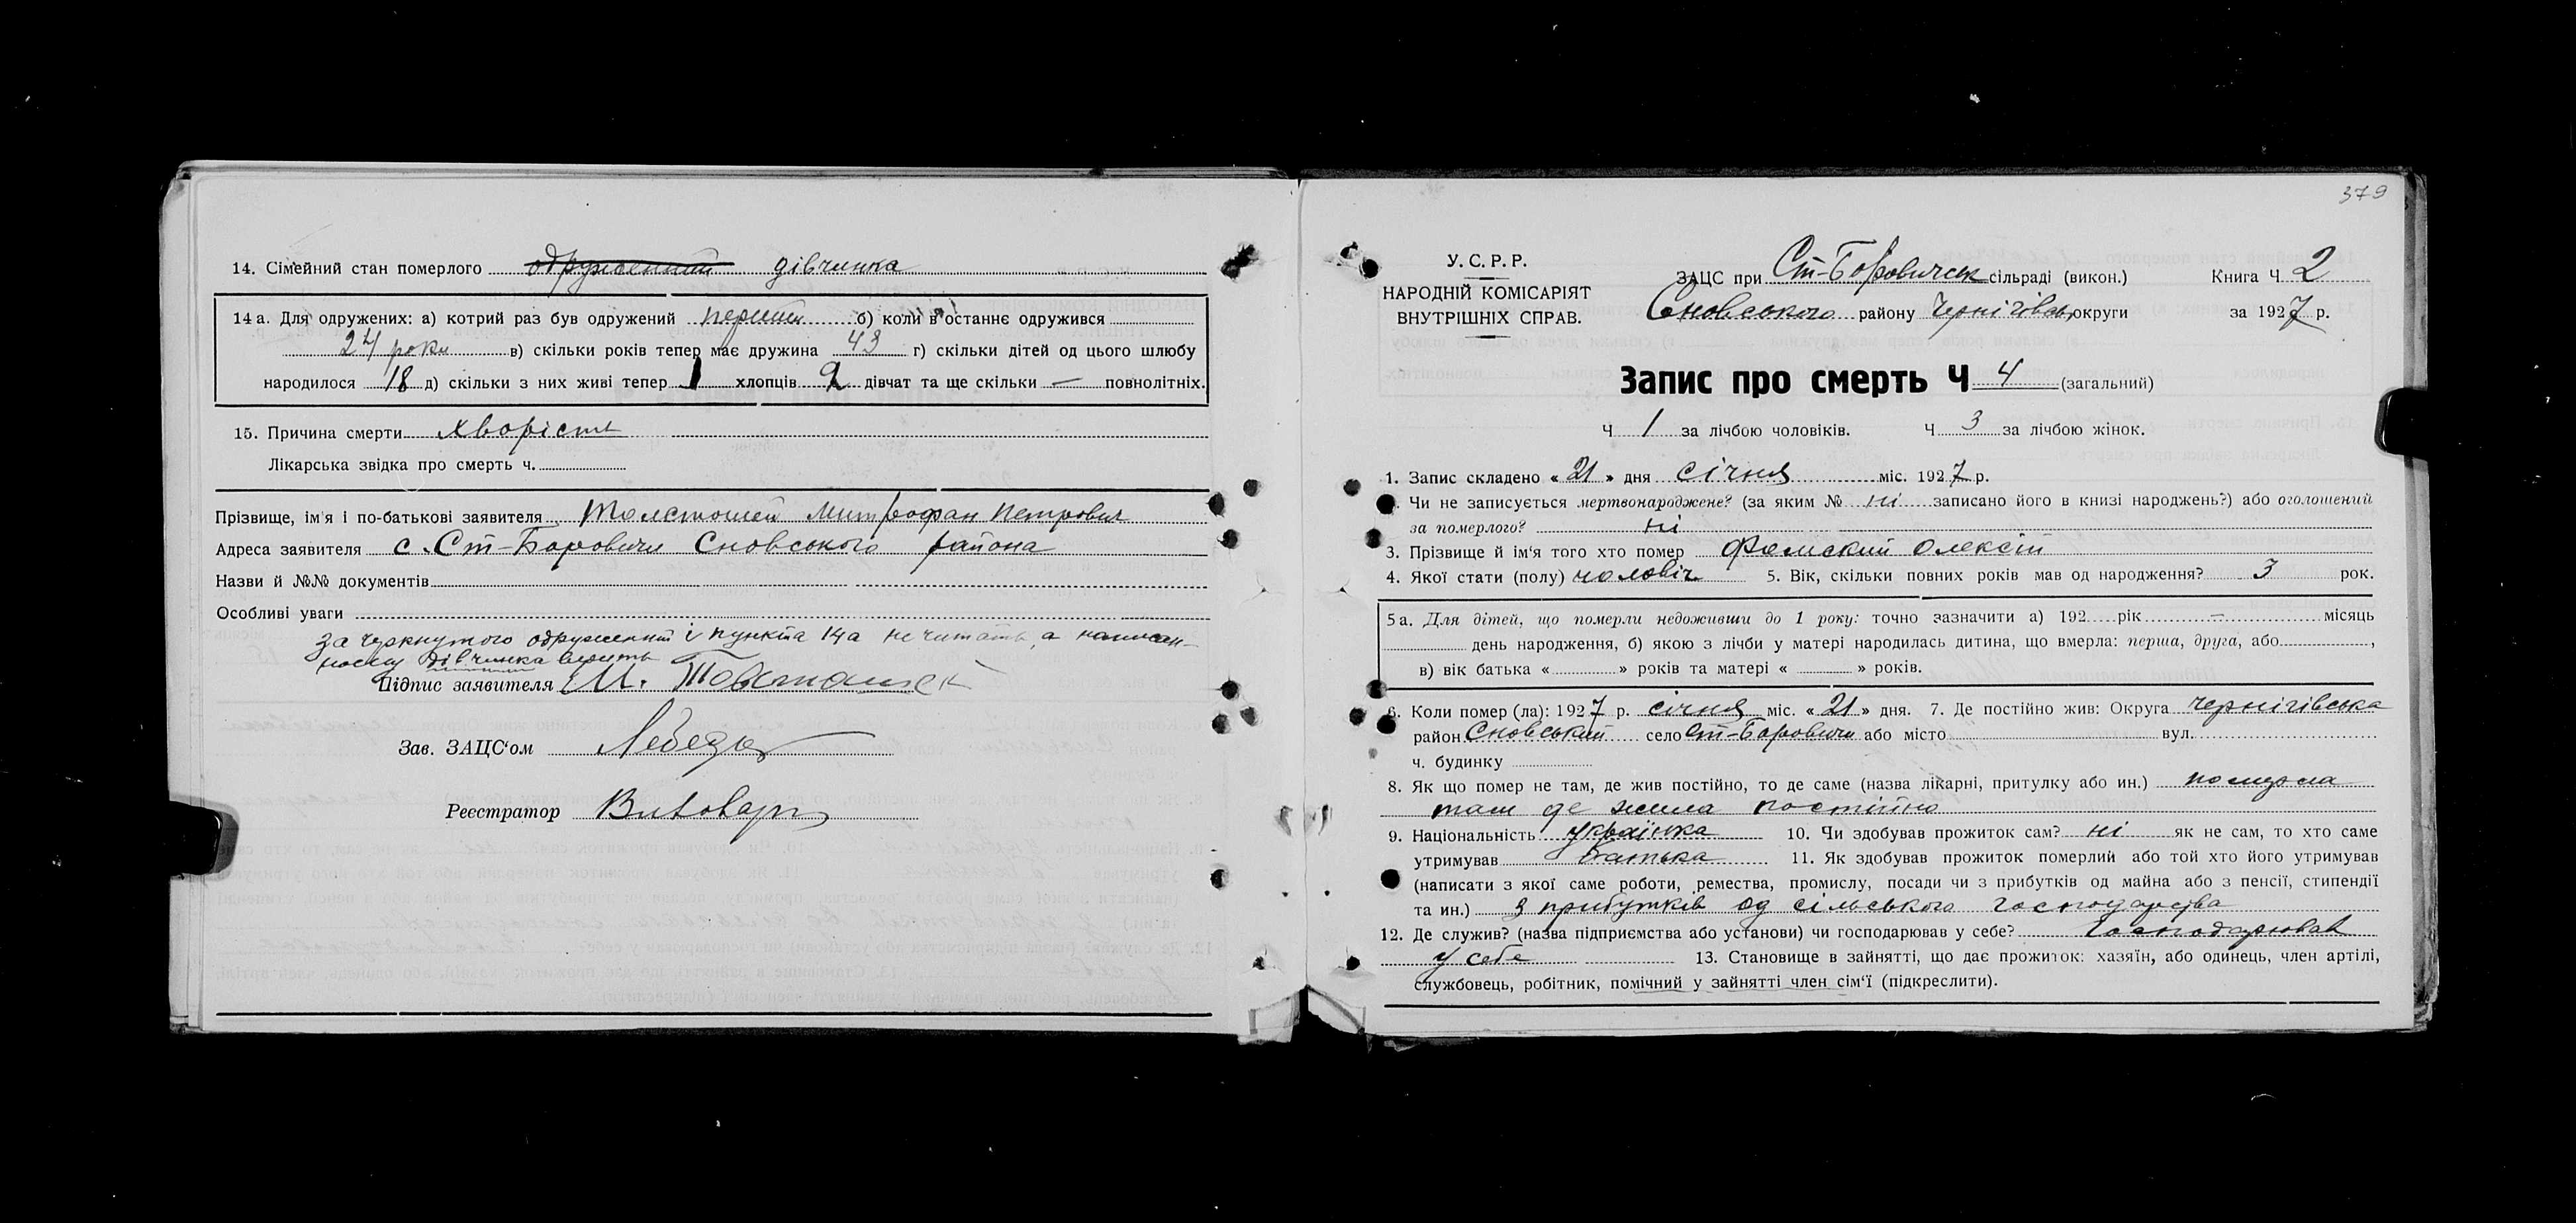 14. Сімейний стан померлого одружений дівчинка
14 а. Для одружених: а) котрий раз був одружений перший б) коли в останнє одружився
24 роки в) скільки років тепер має дружина 43 г) скільки дітей од цього шлюбу
народилося 18 д) скільки з них живі тепер 1 хлопців 2 дівчат та ще скільки — повнолітніх.
15. Причина смерти хворість
Лікарська звідка про смерть ч.
Прізвище, ім'я і по-батькові заявителя Толстошей Митрофан Петрович
Адреса заявителя с. Ст-Боровичи Сновського района
Назви й №№ документів
Особливі уваги
За черкнутого одружений і пункта 14а не читать, а написан-
ному дівчинка верить
Підпис заявителя М.
Зав. ЗАЦС'ом
Реєстратор
379
У. С. Р. Р.
НАРОДНІЙ КОМІСАРІЯТ
ВНУТРІШНІХ СПРАВ.
ЗАЦС при Ст-Боровичськ сільраді (викон.) Книга Ч 2
Сновського району Чернігівськ округи за 1927 р.
Запис про смерть Ч 4 (загальний)
Ч 1 за лічбою чоловіків. Ч 3 за лічбою жінок.
1. Запис складено « 21 » дня січня міс. 1927 р.
Чи не записується мертвонароджене? (за яким № ні записано його в книзі народжень?) або оголошений
за померлого? ні
3. Прізвище й ім'я того хто помер Фомский Олексій
4. Якої стати (полу) чоловіч 5. Вік, скільки повних років мав од народження? 3 рок.
5 а. Для дітей, що померли недоживши до 1 року: точно зазначити а) 192 рік — місяць
день народження, б) якою з лічби у матері народилась дитина, що вмерла: перша, друга, або ,
в) вік батька « » років та матері « » років.
6. Коли помер (ла): 1927 р. січня міс. « 21 » дня. 7. Де постійно жив: Округа Чернігівська
район Сновський село Ст-Боровичи або місто вул.
ч. будинку
8. Як що помер не там, де жив постійно, то де саме (назва лікарні, притулку або ин.) померла
там де жила постійно
9. Національність українка 10. Чи здобував прожиток сам? ні як не сам, то хто саме
утримував батька 11. Як здобував прожиток померлий або той хто його утримував
(написати з якої саме роботи, ремества, промислу, посади чи з прибутків од майна або з пенсії, стипендії
та ин.) З прибутків од сільського господарства
12. Де служив? (назва підприємства або установи) чи господарював у себе? Господарював
у себе 13. Становище в зайнятті, що дає прожиток: хазяїн, або одинець, член артілі,
службовець, робітник, помічний у зайнятті член сім'ї (підкреслити).